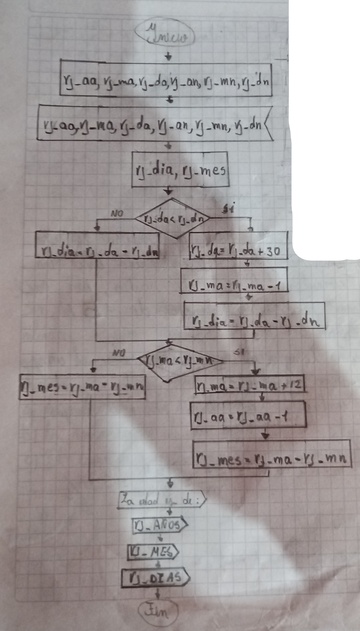 Inicio
rj_aa, rj_ma, rj_da, rj_an, rj_mn, rj_dn
rj_aa, rj_ma, rj_da, rj_an, rj_mn, rj_dn
rj_dia, rj_mes
rj_da < rj_dn
NO
si
rj_dia = rj_da - rj_dn
rj_da = rj_da + 30
rj_ma = rj_ma - 1
rj_dia = rj_da - rj_dn
rj_ma < rj_mn
NO
si
rj_mes = rj_ma - rj_mn
rj_ma = rj_ma + 12
rj_aa = rj_aa - 1
rj_mes = rj_ma - rj_mn
La edad es de:
rj_AÑOS
rj_MES
rj_DIAS
Fin